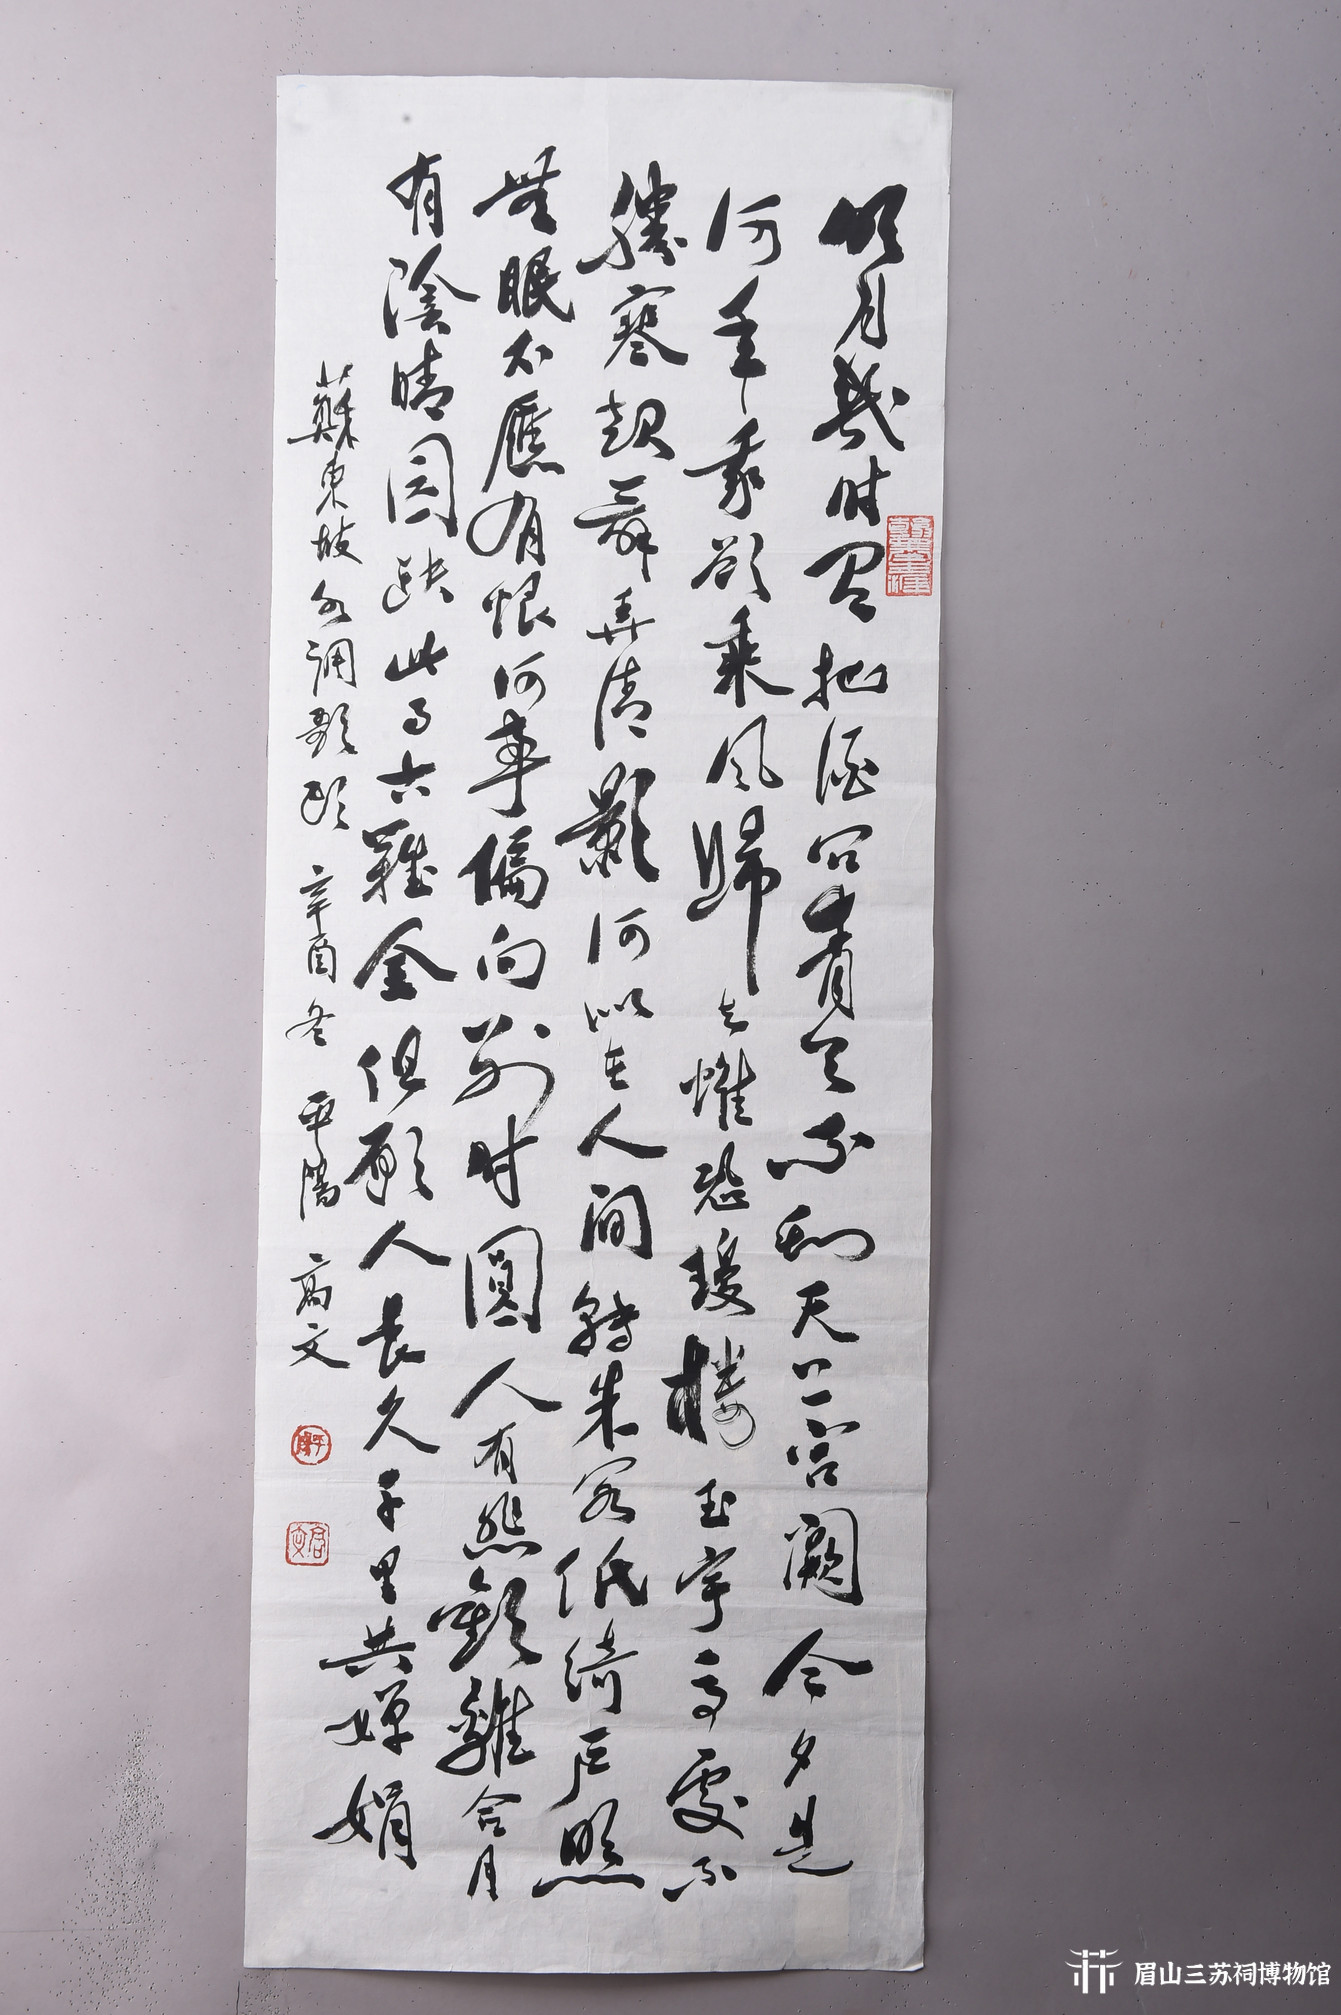 明月幾时有把酒问青天不知天上宫阙今夕是
何年我欲乘风歸去惟恐瓊樓玉宇高處不
勝寒起舞弄清影何似在人间轉朱阁低绮户照
無眠不應有恨何事偏向别时圓人有悲歡離合月
有陰晴圆缺此事古難全但願人長久千里共嬋娟
蘇東坡水调歌頭 辛酉冬 平陽 高文
高文
眉山三苏祠博物馆